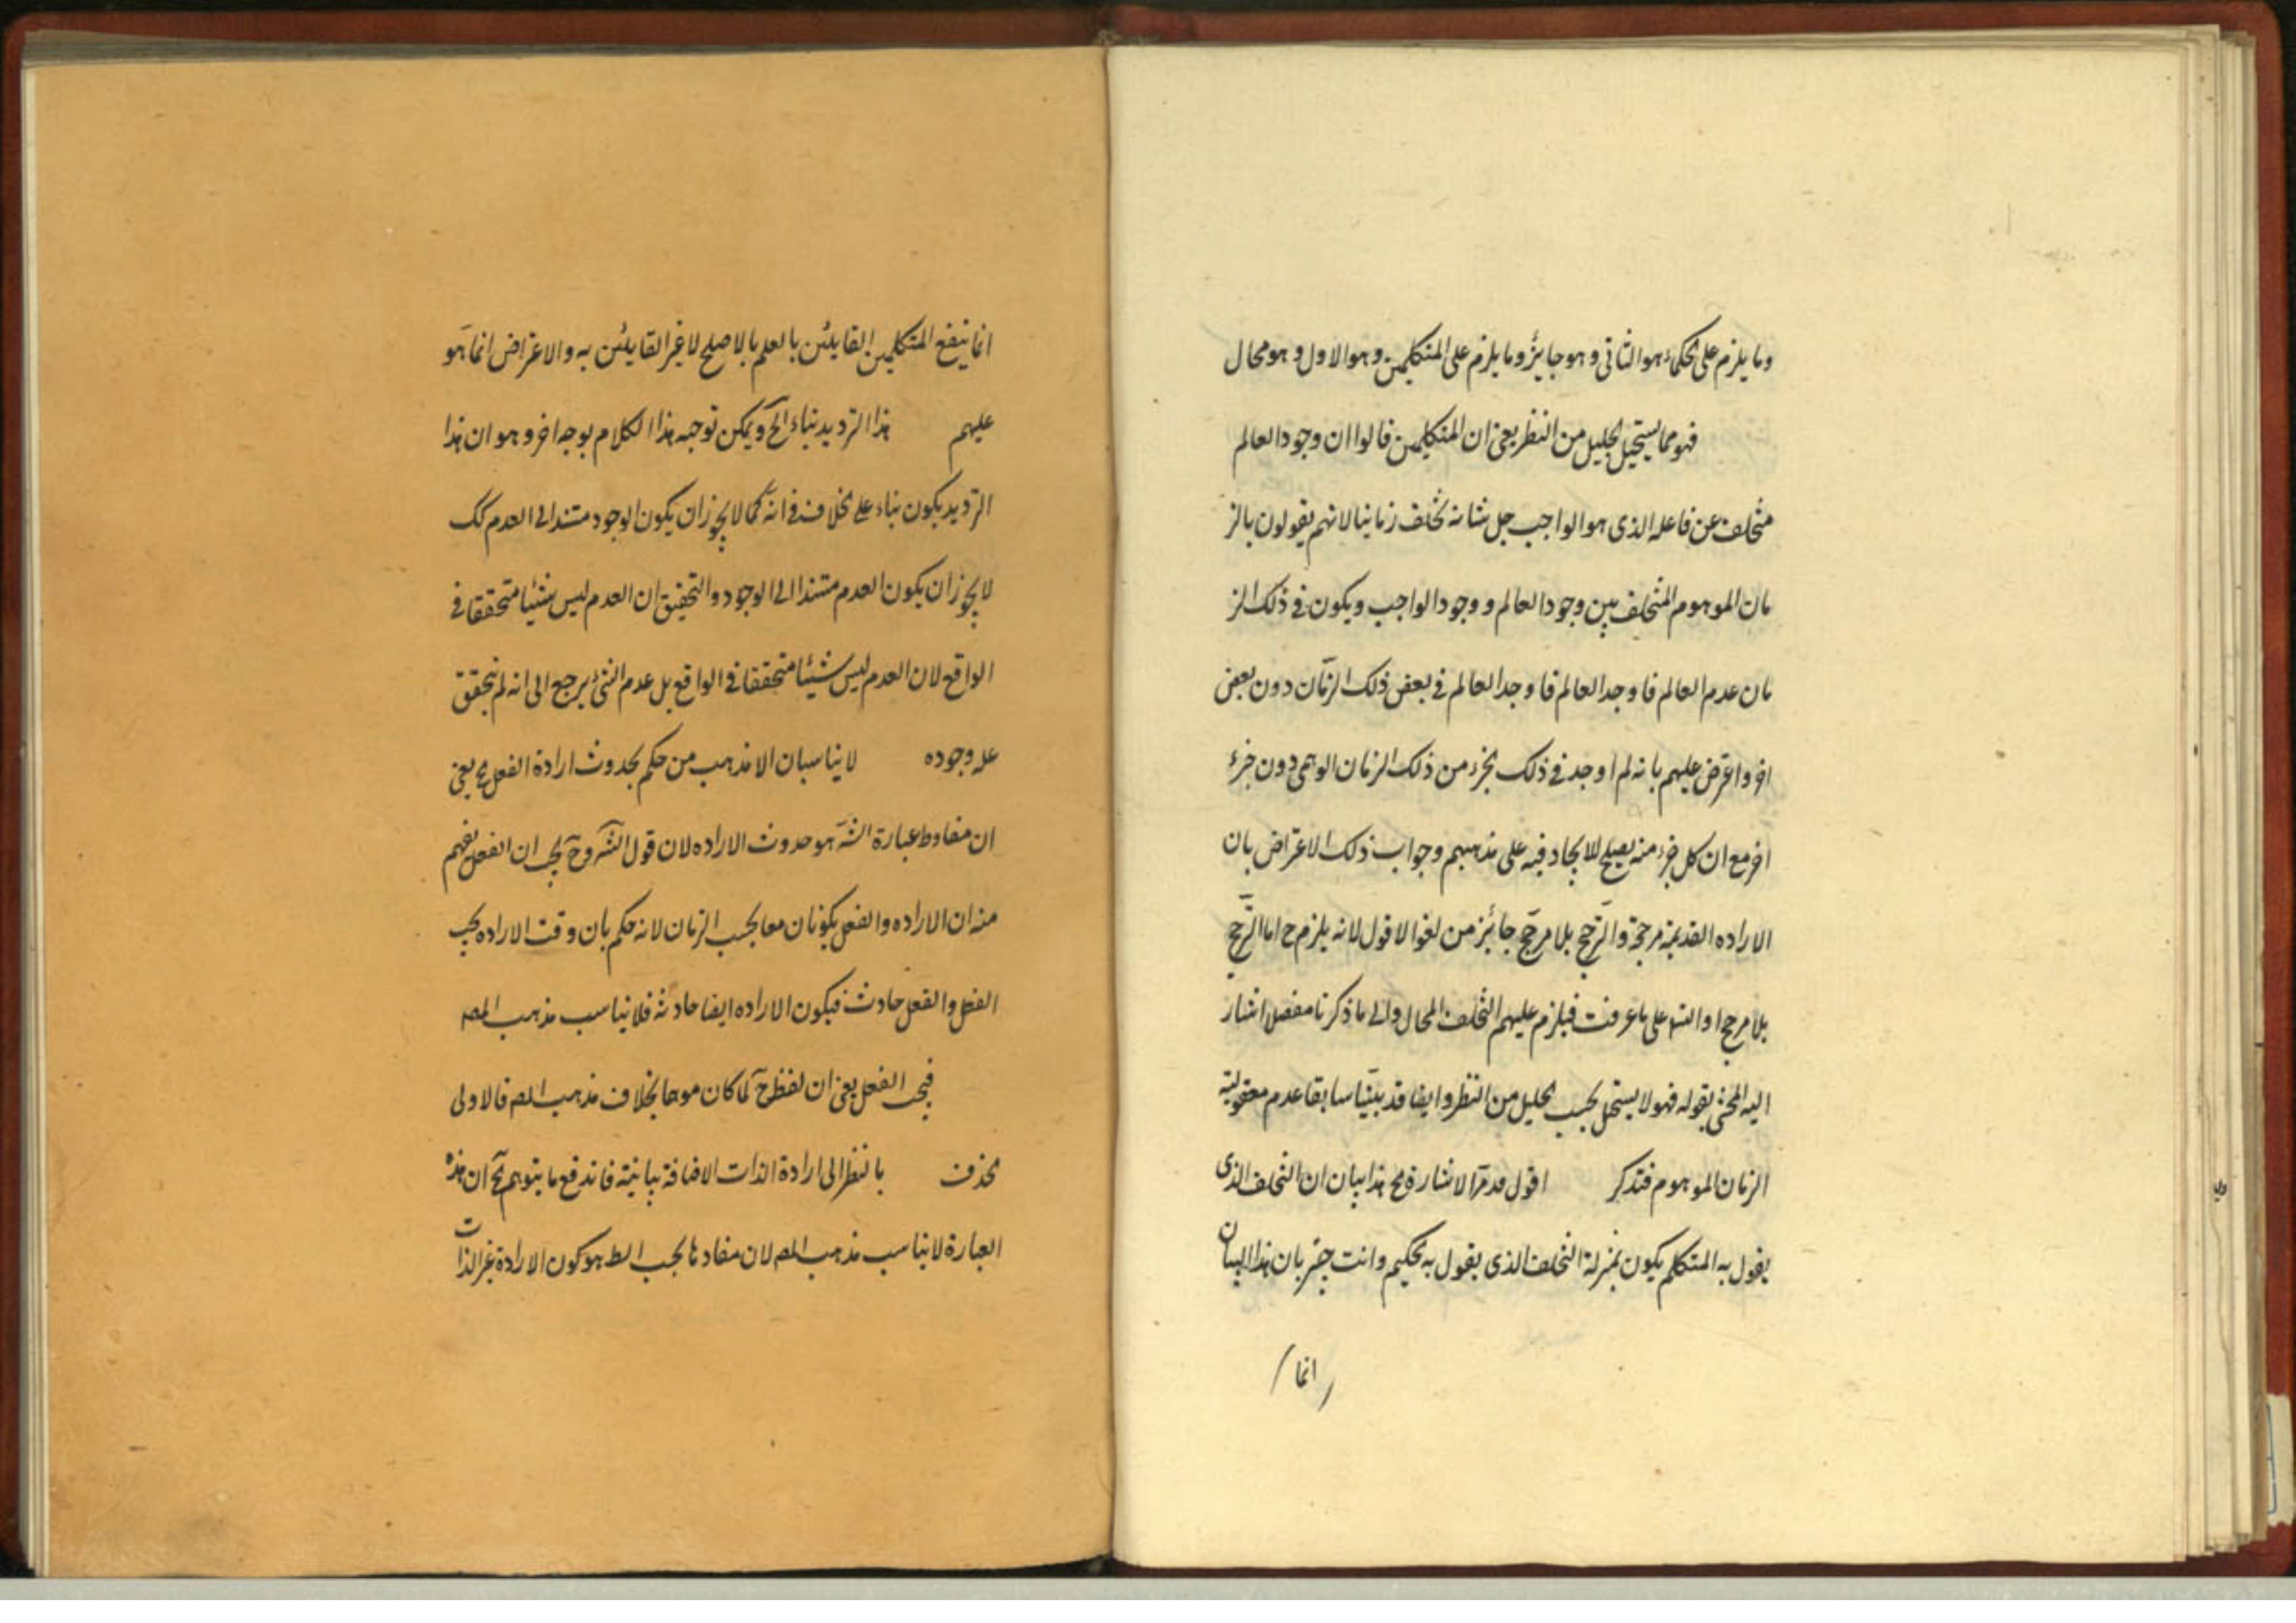 وما يلزم على الحكماء هو الثاني و هو جايز وما يلزم على المتكلمين و هو الاول و هو محال
فهو مما يستحيل الجليل من النظر يعنى ان المتكلمين قالوا ان وجود العالم
متخلف عن فاعله الذى هو الواجب جل شانه تخلف زمانيا لانهم يقولون بالز
مان الموهوم المتخلف بين وجود العالم و وجود الواجب ويكون فى ذلك الز
مان عدم العالم فاوجد العالم فاوجد العالم فى بعض ذلك الزمان دون بعض
اخر واعترض عليهم بانه لم اوجد فى ذلك بجزء من ذلك الزمان الوهمى دون جزء
اخر مع ان كل جزء منه يصلح للايجاد فيه على مذهبهم وجواب ذلك الاعتراض بان
الاراده القديمة مرجحة والترجيح بلا مرجح جائز من لغو الاقول لانه يلزم ح اما الترجيح
بلا مرجح او التسـ على ما عرفت فيلزم عليهم التخلف المحال والى ما ذكرنا مفصل اشار
اليه المحشى بقوله فهو لا يستحل بحسب الجليل من النظر وايضا قد بيّنا سابقا عدم معقولية
الزمان الموهوم فتذكر اقول قد مرّ الاشارة مع هذا بيان ان التخلف الذى
يقول به المتكلم يكون بمنزلة التخلف الذى يقول به الحكيم وانت خبير بان هذا البيان
انما
انما ينفع المتكلمين القايلين بالعلم بالاصلح لا غير القايلين به والاعتراض انما هو
عليهم هذا الترديد بناء الخ ويمكن توجيه هذا الكلام بوجه اخر و هو ان هذا
الترديد يكون بناء على الخلاف فى انه كما لا يجوز ان يكون الوجود مستندا الى العدم كك
لا يجوز ان يكون العدم مستندا الى الوجود والتحقيق ان العدم ليس شيئا متحققا فى
الواقع لان العدم ليس شيئا متحققا فى الواقع بل عدم الشئ يرجع الى انه لم يتحقق
علة وجوده لا يناسبان الا مذهب من حكم بحدوث ارادة الفعل مع يعنى
ان مفاد عبارة الشـ هو حدوث الاراده لان قول الشـ وح يجب ان الفعل يفهم
منه ان الاراده والفعل يكونان معا بحسب الزمان لانه حكم بان وقت الاراده يجب
الفعل والفعل حادث فيكون الاراده ايضا حادثة فلا يناسب مذهب المصـ
فيجب الفعل يعنى ان لفظ ح لما كان موهما بخلاف مذهب المصـ فالاولى
بحذف بالنظر الى ارادة الذات الاضافة بيانية فاندفع ما يتوهم ان هذه
العبارة لا يناسب مذهب المصـ لان مفادها بحسب الظـ هو كون الارادة غير الذات